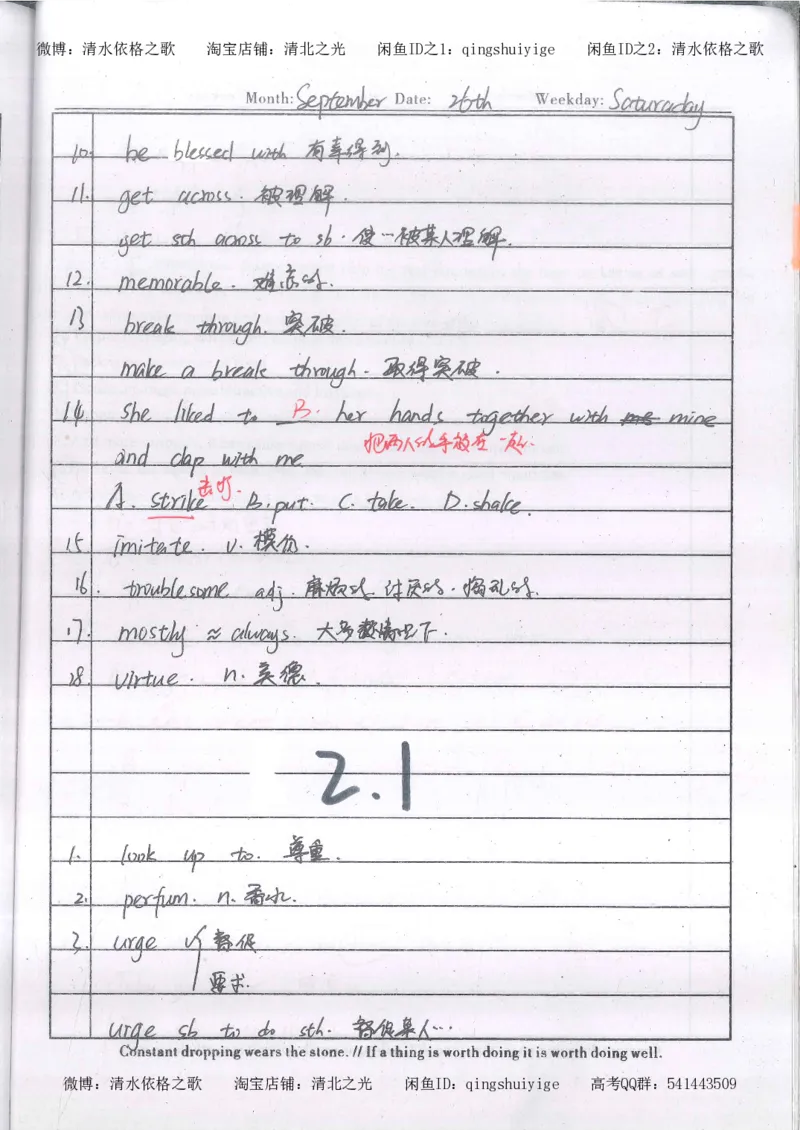 微博：清水依格之歌 淘宝店铺：清北之光 闲鱼ID之1：qingshuiyige 闲鱼ID之2：清水依格之歌
Month: September Date: 26th Weekday: Saturaday
10. be blessed with 有幸得到.
11. get across. 被理解.
get sth across to sb. 使…被某人理解.
12. memorable. 难忘的.
13 break through. 突破.
make a break through. 取得突破.
14. she liked to B. her hands together with me mine
把两人的手放在一起.
and clap with me.
击打.
A. strike B. put. C. take. D. shake.
15 imitate. v. 模仿.
16. troublesome adj. 麻烦的. 讨厌的. 捣乱的.
17. mostly ≈ always. 大多数情况下.
18. virtue. n. 美德.
2.1
1. look up to. 尊重.
2. perfum. n. 香水.
3. urge v 督促
要求.
urge sb to do sth. 督促某人…
Constant dropping wears the stone. // If a thing is worth doing it is worth doing well.
微博：清水依格之歌 淘宝店铺：清北之光 闲鱼ID：qingshuiyige 高考QQ群：541443509